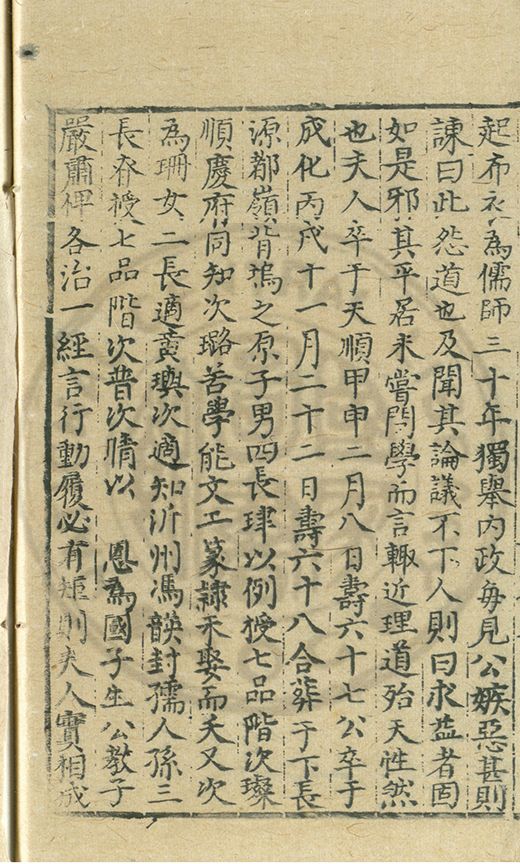 起布衣為儒師三十年獨舉內政每見公嫉惡甚則
諫曰此怨道也及聞其論議不下人則曰求益者固
如是邪其平居未嘗問學而言輙近理道殆天性然
也夫人卒于天順甲申二月八日壽六十七公卒于
成化丙戌十一月二十二日壽六十八合葬于下長
源都嶺背塢之原子男四長珒以例授七品階次璨
順慶府同知次璐善學能文工篆隷未娶而夭又次
為珊女二長適黄璵次適知沂州馮韺封孺人孫三
長脊授七品階次普次睛以　恩為國子生公教子
嚴肅俾各治一經言行動履必有矩則夫人實相成